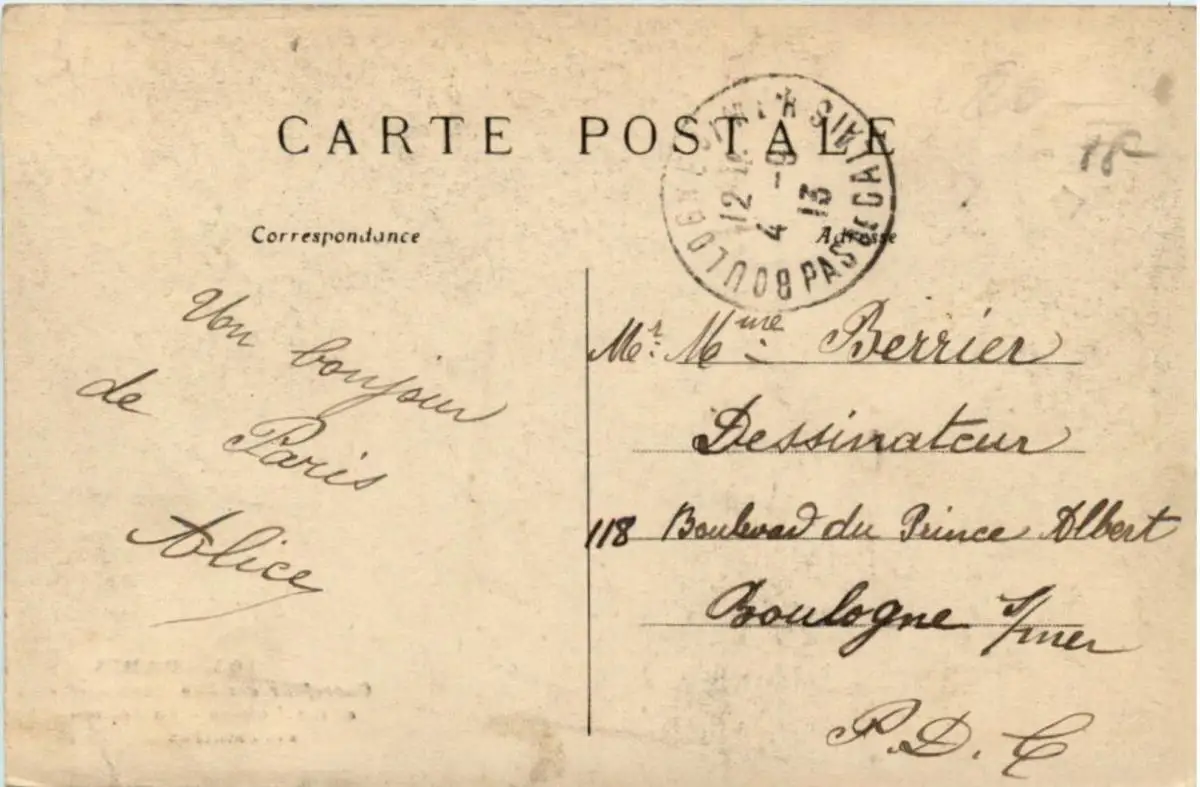 CARTE POSTALE
Correspondance
Adresse
BOULOGNE S/MER PAS DE CALAIS
12
4 -9
13
Un bonjour
de Paris
Alice
Mr. Mme Berrier
Dessinateur
118 Boulevard du Prince Albert
Boulogne s/mer
P.D.C